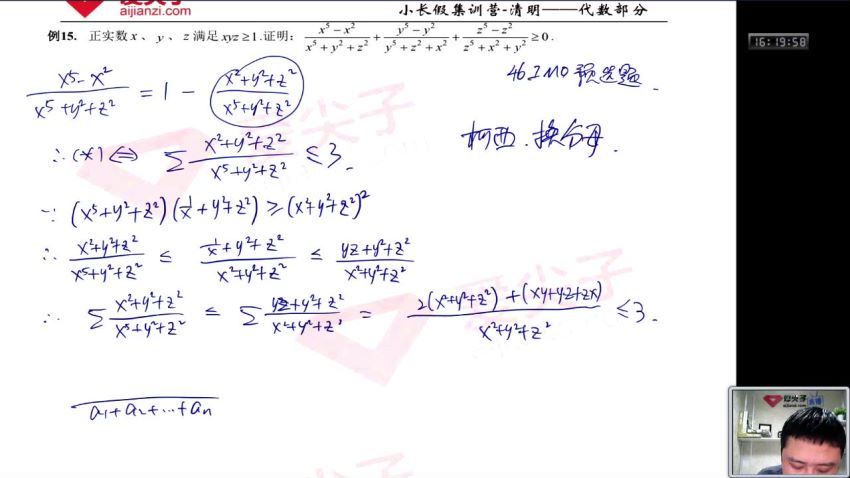 爱尖子
aijianzi.com
小长假集训营-清明——代数部分
例15. 正实数 x 、 y 、 z 满足 xyz ≥ 1.证明: (x⁵-x²)/(x⁵+y²+z²) + (y⁵-y²)/(y⁵+z²+x²) + (z⁵-z²)/(z⁵+x²+y²) ≥ 0.
16:19:58
46 IMO 预选题.
(x⁵-x²)/(x⁵+y²+z²) = 1 - (x²+y²+z²)/(x⁵+y²+z²)
柯西. 换分母.
∴ (*) ⇔ ∑ (x²+y²+z²)/(x⁵+y²+z²) ≤ 3.
∵ (x⁵+y²+z²)(1/x+y²+z²) ≥ (x²+y²+z²)²
∴ (x²+y²+z²)/(x⁵+y²+z²) ≤ (1/x+y²+z²)/(x²+y²+z²) ≤ (yz+y²+z²)/(x²+y²+z²)
∴ ∑ (x²+y²+z²)/(x⁵+y²+z²) ≤ ∑ (yz+y²+z²)/(x²+y²+z²) = (2(x²+y²+z²)+(xy+yz+zx))/(x²+y²+z²) ≤ 3.
a₁+a₂+…+aₙ
爱尖子